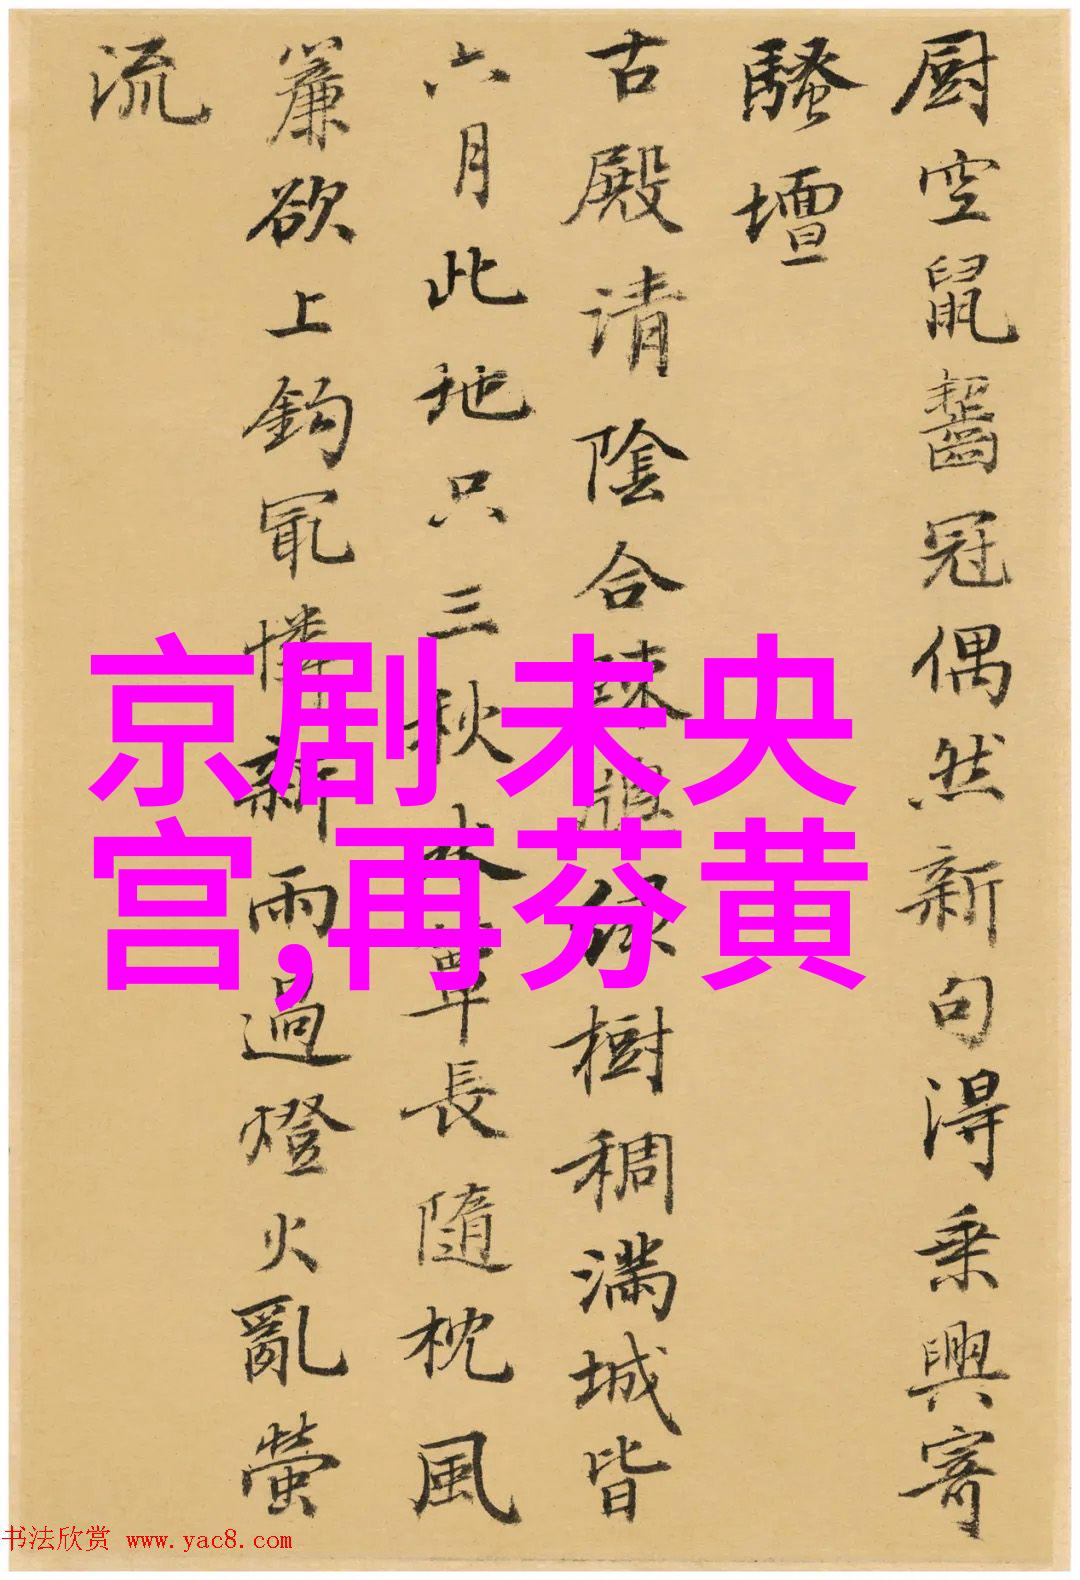 厨空鼠齧冠偶然新句得乘興寄
騷壇
古殿请陰合疎緑樹稠满城皆
六月此地只三秋簟長隨枕風
簾欲上鈎冣憐新雨過燈火亂螢
流
京剧 未央
宫,再芬黄
书法欣赏 www.yac8.com